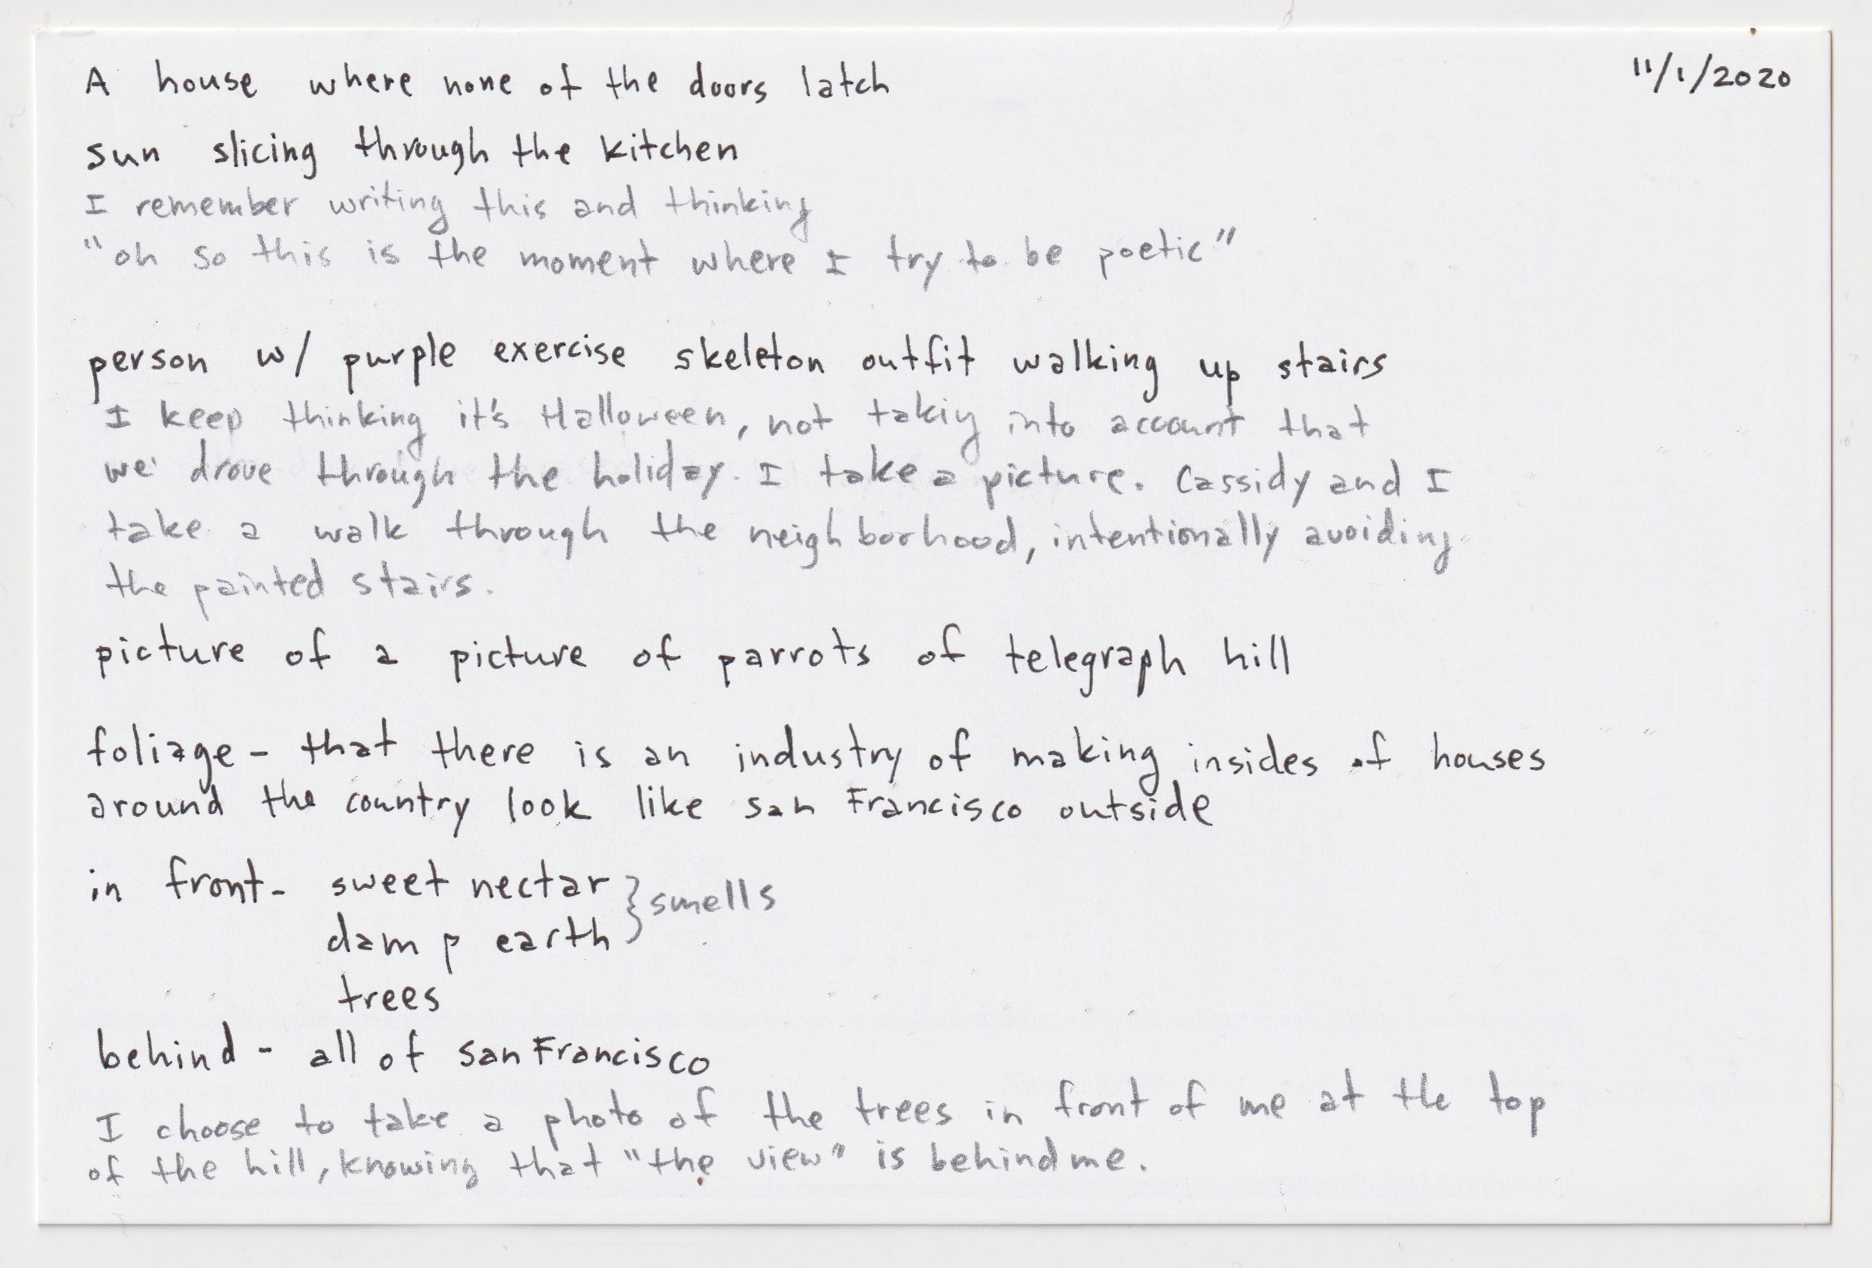 A house where none of the doors latch
11/1/2020
sun slicing through the kitchen
I remember writing this and thinking
"oh so this is the moment where I try to be poetic"
person w/ purple exercise skeleton outfit walking up stairs
I keep thinking it's Halloween, not takiy into account that
we drove through the holiday. I take a picture. Cassidy and I
take a walk through the neighborhood, intentionally avoiding
the painted stairs.
picture of a picture of parrots of telegraph hill
foliage - that there is an industry of making insides of houses
around the country look like san Francisco outside
in front - sweet nectar } smells
damp earth
trees
behind - all of san Francisco
I choose to take a photo of the trees in front of me at the top
of the hill, knowing that "the view" is behind me.